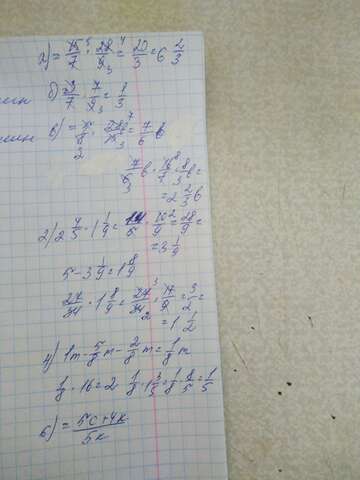 а) = 15/7 · 28/9 = 20/3 = 6 2/3
б) 3/7 · 7/9 = 1/3
в) = 5/8 · 28/15 = 7/6 b
7/6 b · 16/7 = 8/3 b =
= 2 2/3 b
2) 2 4/5 · 1 1/9 = 14/5 · 10/9 = 28/9 =
= 3 1/9
5 - 3 1/9 = 1 8/9
27/34 · 1 8/9 = 27/34 · 17/9 = 3/2 =
= 1 1/2
4) 1m - 5/8 m - 2/8 m = 1/8 m
1/8 · 16 = 2 1/8 · 1 3/5 = 1/8 · 8/5 = 1/5
6) = 5c+4k/5k